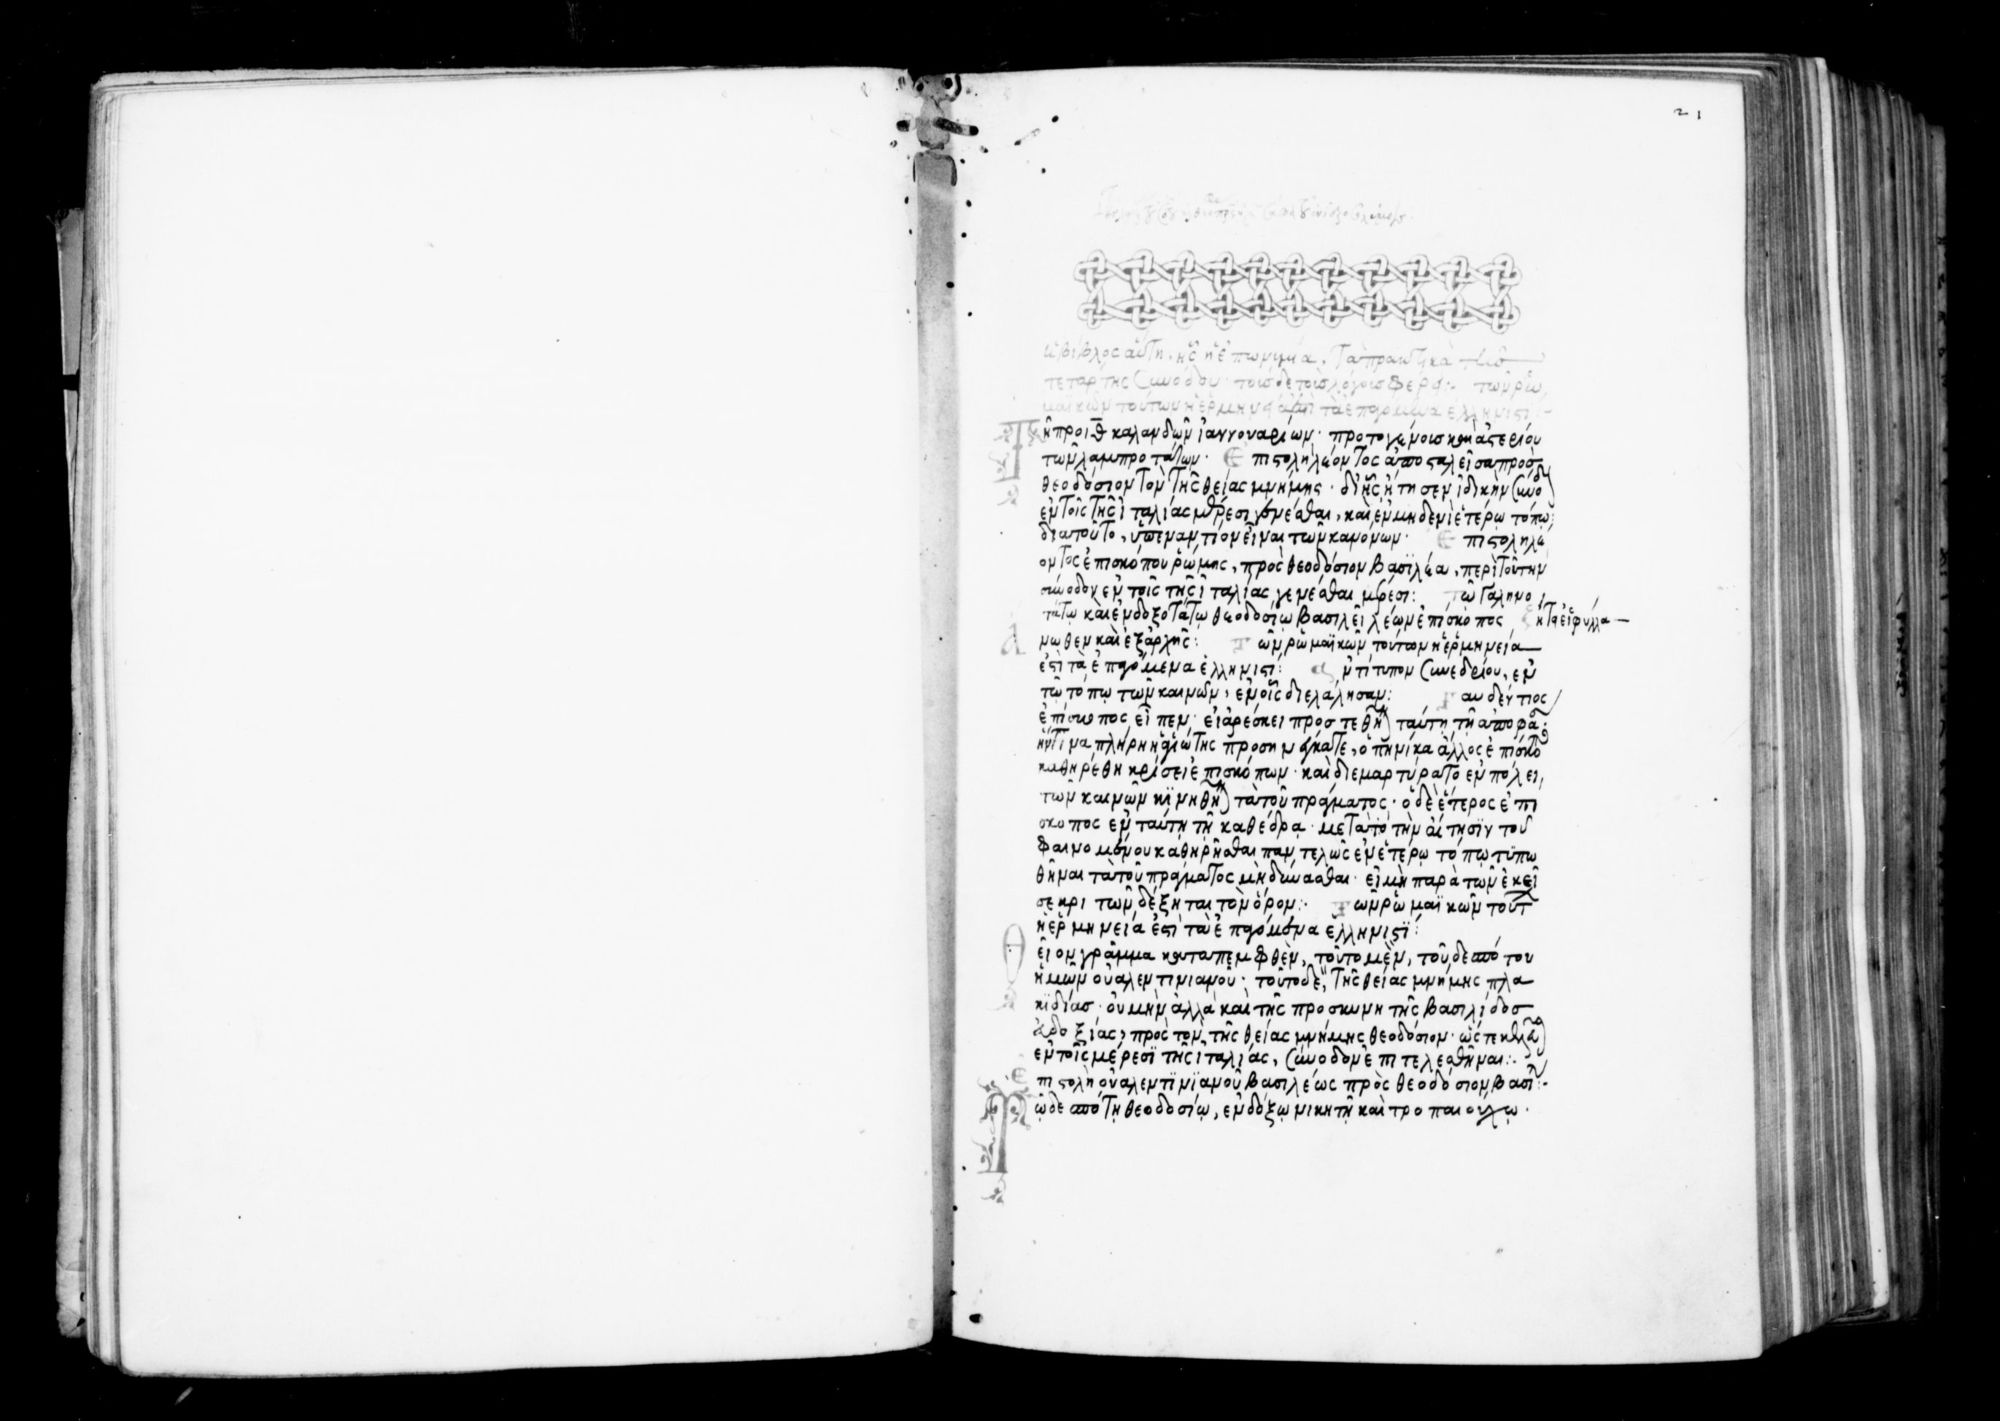 21
ἡ βίβλος αὕτη, ἧς ἡ ἐπωνυμία, τὰ πρακτικὰ τῆς
τετάρτης συνόδου· τοῖσδε τοῖς λόγοις φέρει: τῶν ῥω
μαϊκῶν τούτων ἡ ἑρμηνεία ἐστὶ τὰ ἑπόμενα ἑλληνιστί:
Τῇ πρὸ ιθ καλανδῶν ἰαννουαρίων· πρωτογένους καὶ ἀστερίου
τῶν λαμπροτάτων· Ἐπιστολὴ λέοντος ἀποσταλεῖσα πρὸς
θεοδόσιον τὸν τῆς θείας μνήμης· δι' ἧς ᾔτησεν ἰδικὴν σύνοδ
ἐν τοῖς τῆς ἰταλίας μέρεσι γενέσθαι, καὶ ἐν μηδενὶ ἑτέρῳ τόπῳ:
διὰ τοῦτο, ὑπεναντίον εἶναι τῶν κανόνων· Ἐπιστολὴ λέ
οντος ἐπισκόπου ῥώμης, πρὸς θεοδόσιον βασιλέα, περὶ τοῦ τὴν
σύνοδον ἐν τοῖς τῆς ἰταλίας γενέσθαι μέρεσι: Τῷ γαληνο
τάτῳ καὶ ἐνδοξοτάτῳ θεοδοσίῳ βασιλεῖ λέων ἐπίσκοπος
νωθεν καὶ ἐξ ἀρχῆς: Τῶν ῥωμαϊκῶν τούτων ἡ ἑρμηνεία
ἐστὶ τὰ ἑπόμενα ἑλληνιστί: Ἀντίτυπον συνεδρίου, ἐν
τῷ τόπῳ τῶν καινῶν, ἐν οἷς διελάλησαν: Γαυδέντιος
ἐπίσκοπος εἶπεν· εἰ ἀρέσκει προστεθῆν ταύτῃ τῇ ἀποφά
ἥντινα πλήρη ἁγιότης προσηνέγκατε, ὁπηνίκα ἄλλος ἐπίσκοπ
καθηρέθη κρίσει ἐπισκόπων· καὶ διεμαρτύρατο ἐν πόλει,
τῶν καινῶν κινηθῆν τὰ τοῦ πράγματος· ὁ δὲ ἕτερος ἐπί
σκοπος ἐν ταύτῃ τῇ καθέδρᾳ· μετὰ τὸ τὴν αἴτησιν τοῦ
φαινομένου καθηρῆσθαι παντελῶς ἐν ἑτέρῳ τόπῳ τυπω
θῆναι τὰ τοῦ πράγματος μὴ δύνασθαι· εἰ μὴ παρὰ τῶν ἐκεῖ
σε κριτῶν δέξηται τὸν ὅρον:· Τῶν ῥωμαϊκῶν τούτ
ἡ ἑρμηνεία ἐστὶ τὰ ἑπόμενα ἑλληνιστί:
Θεῖον γράμμα καταπεμφθὲν, τοῦτο μὲν, τοῦ δεσπότου
ἡμῶν οὐαλεντινιανοῦ· τοῦτο δὲ, τῆς θείας μνήμης πλα
κιδίας· οὐ μὴν ἀλλὰ καὶ τῆς προσκυνητῆς βασιλίδος
εὐδοξίας, πρὸς τὸν τῆς θείας μνήμης θεοδόσιον· ὥστε
ἐν τοῖς μέρεσι τῆς ἰταλίας, σύνοδον ἐπιτελεσθῆναι:·
Ἐπιστολὴ οὐαλεντινιανοῦ βασιλέως πρὸς θεοδόσιον βασιλ:·
Τῷ δεσπότῃ θεοδοσίῳ, ἐνδόξῳ νικητῇ καὶ τροπαιούχῳ·